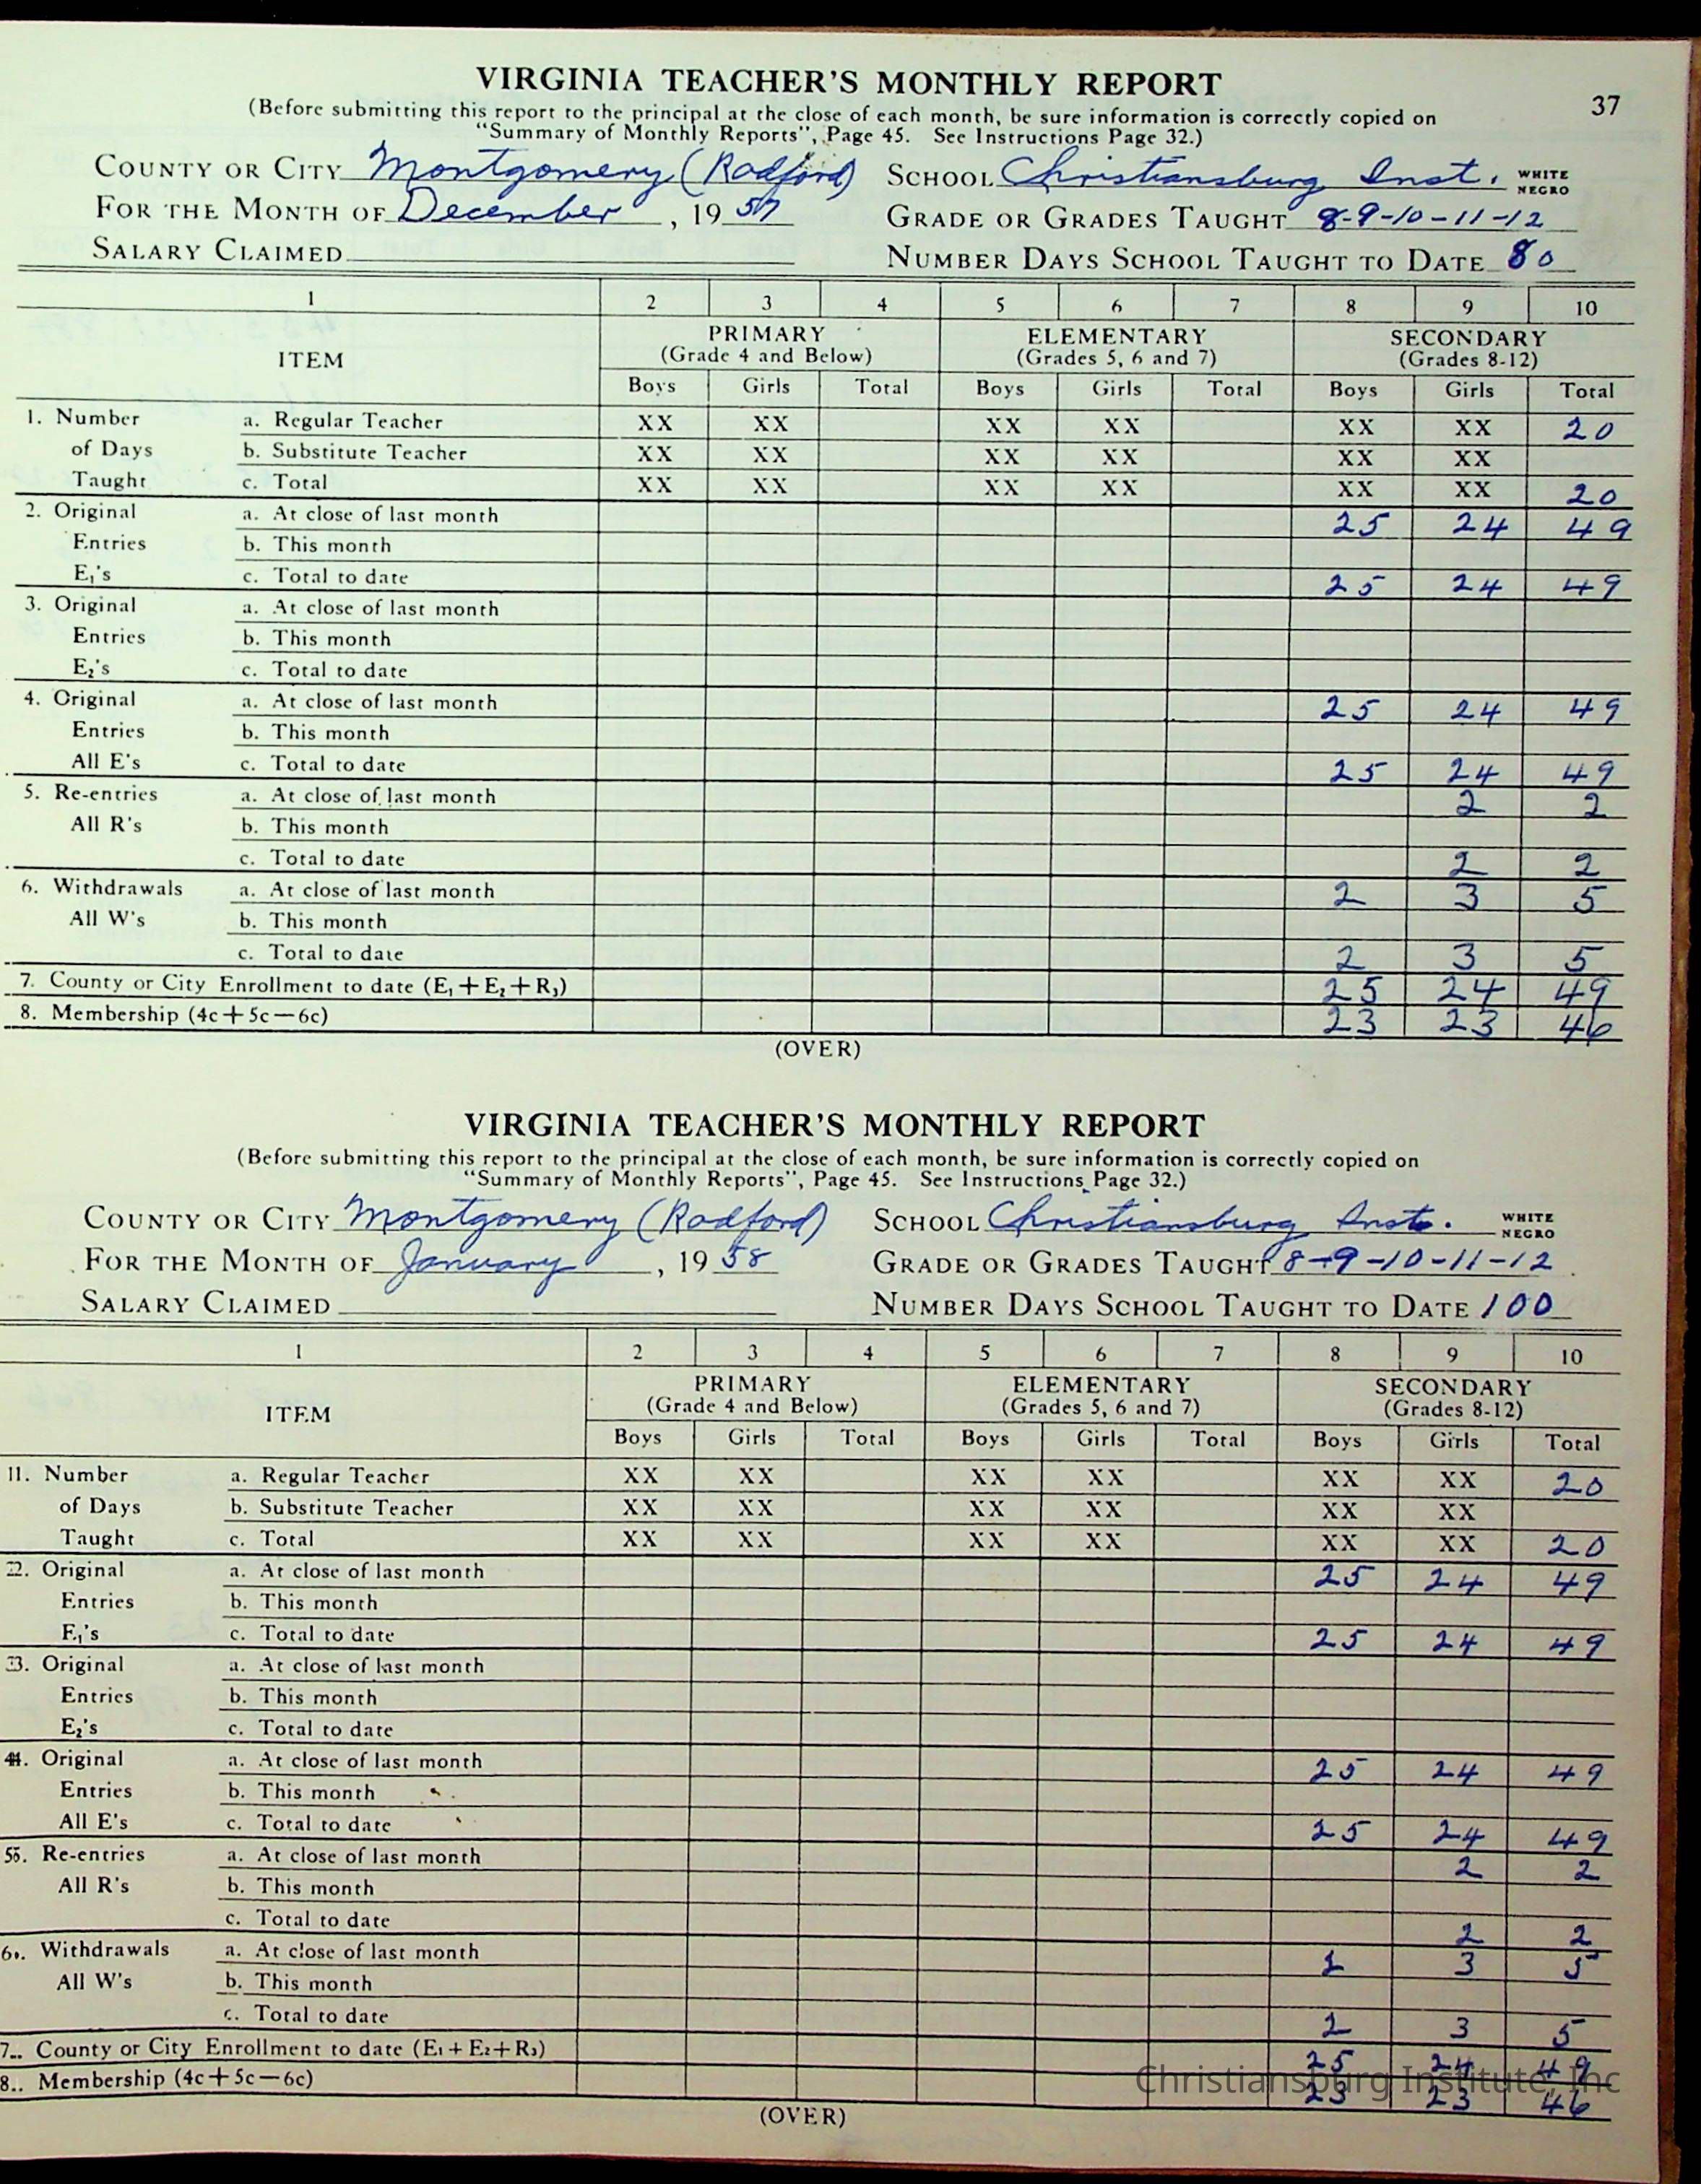 VIRGINIA TEACHER'S MONTHLY REPORT
37
(Before submitting this report to the principal at the close of each month, be sure information is correctly copied on
"Summary of Monthly Reports", Page 45. See Instructions Page 32.)
COUNTY OR CITY Montgomery (Radford) SCHOOL Christiansburg Inst. WHITE NEGRO
FOR THE MONTH OF December, 1957 GRADE OR GRADES TAUGHT 8-9-10-11-12
SALARY CLAIMED NUMBER DAYS SCHOOL TAUGHT TO DATE 80
1 2 3 4 5 6 7 8 9 10
ITEM PRIMARY ELEMENTARY SECONDARY
(Grade 4 and Below) (Grades 5, 6 and 7) (Grades 8-12)
Boys Girls Total Boys Girls Total Boys Girls Total
1. Number a. Regular Teacher XX XX XX XX XX XX 20
of Days b. Substitute Teacher XX XX XX XX XX XX
Taught c. Total XX XX XX XX XX XX 20
2. Original a. At close of last month 25 24 49
Entries b. This month
E1's c. Total to date 25 24 49
3. Original a. At close of last month
Entries b. This month
E2's c. Total to date
4. Original a. At close of last month 25 24 49
Entries b. This month
All E's c. Total to date 25 24 49
5. Re-entries a. At close of last month 2 2
All R's b. This month
c. Total to date 2 2
6. Withdrawals a. At close of last month 2 3 5
All W's b. This month
c. Total to date 2 3 5
7. County or City Enrollment to date (E1+E2+R3) 25 24 49
8. Membership (4c+5c—6c) 23 23 46
(OVER)
VIRGINIA TEACHER'S MONTHLY REPORT
(Before submitting this report to the principal at the close of each month, be sure information is correctly copied on
"Summary of Monthly Reports", Page 45. See Instructions Page 32.)
COUNTY OR CITY Montgomery (Radford) SCHOOL Christiansburg Inst. WHITE NEGRO
FOR THE MONTH OF January, 1958 GRADE OR GRADES TAUGHT 8-9-10-11-12
SALARY CLAIMED NUMBER DAYS SCHOOL TAUGHT TO DATE 100
1 2 3 4 5 6 7 8 9 10
ITEM PRIMARY ELEMENTARY SECONDARY
(Grade 4 and Below) (Grades 5, 6 and 7) (Grades 8-12)
Boys Girls Total Boys Girls Total Boys Girls Total
11. Number a. Regular Teacher XX XX XX XX XX XX 20
of Days b. Substitute Teacher XX XX XX XX XX XX
Taught c. Total XX XX XX XX XX XX 20
22. Original a. At close of last month 25 24 49
Entries b. This month
E1's c. Total to date 25 24 49
33. Original a. At close of last month
Entries b. This month
E2's c. Total to date
44. Original a. At close of last month 25 24 49
Entries b. This month
All E's c. Total to date 25 24 49
55. Re-entries a. At close of last month 2 2
All R's b. This month
c. Total to date 2 2
6.. Withdrawals a. At close of last month 2 3 5
All W's b. This month
c. Total to date 2 3 5
7.. County or City Enrollment to date (E1+E2+R3) 25 24 49
8.. Membership (4c+5c—6c) 23 23 46
Christiansburg Institute, Inc
(OVER)